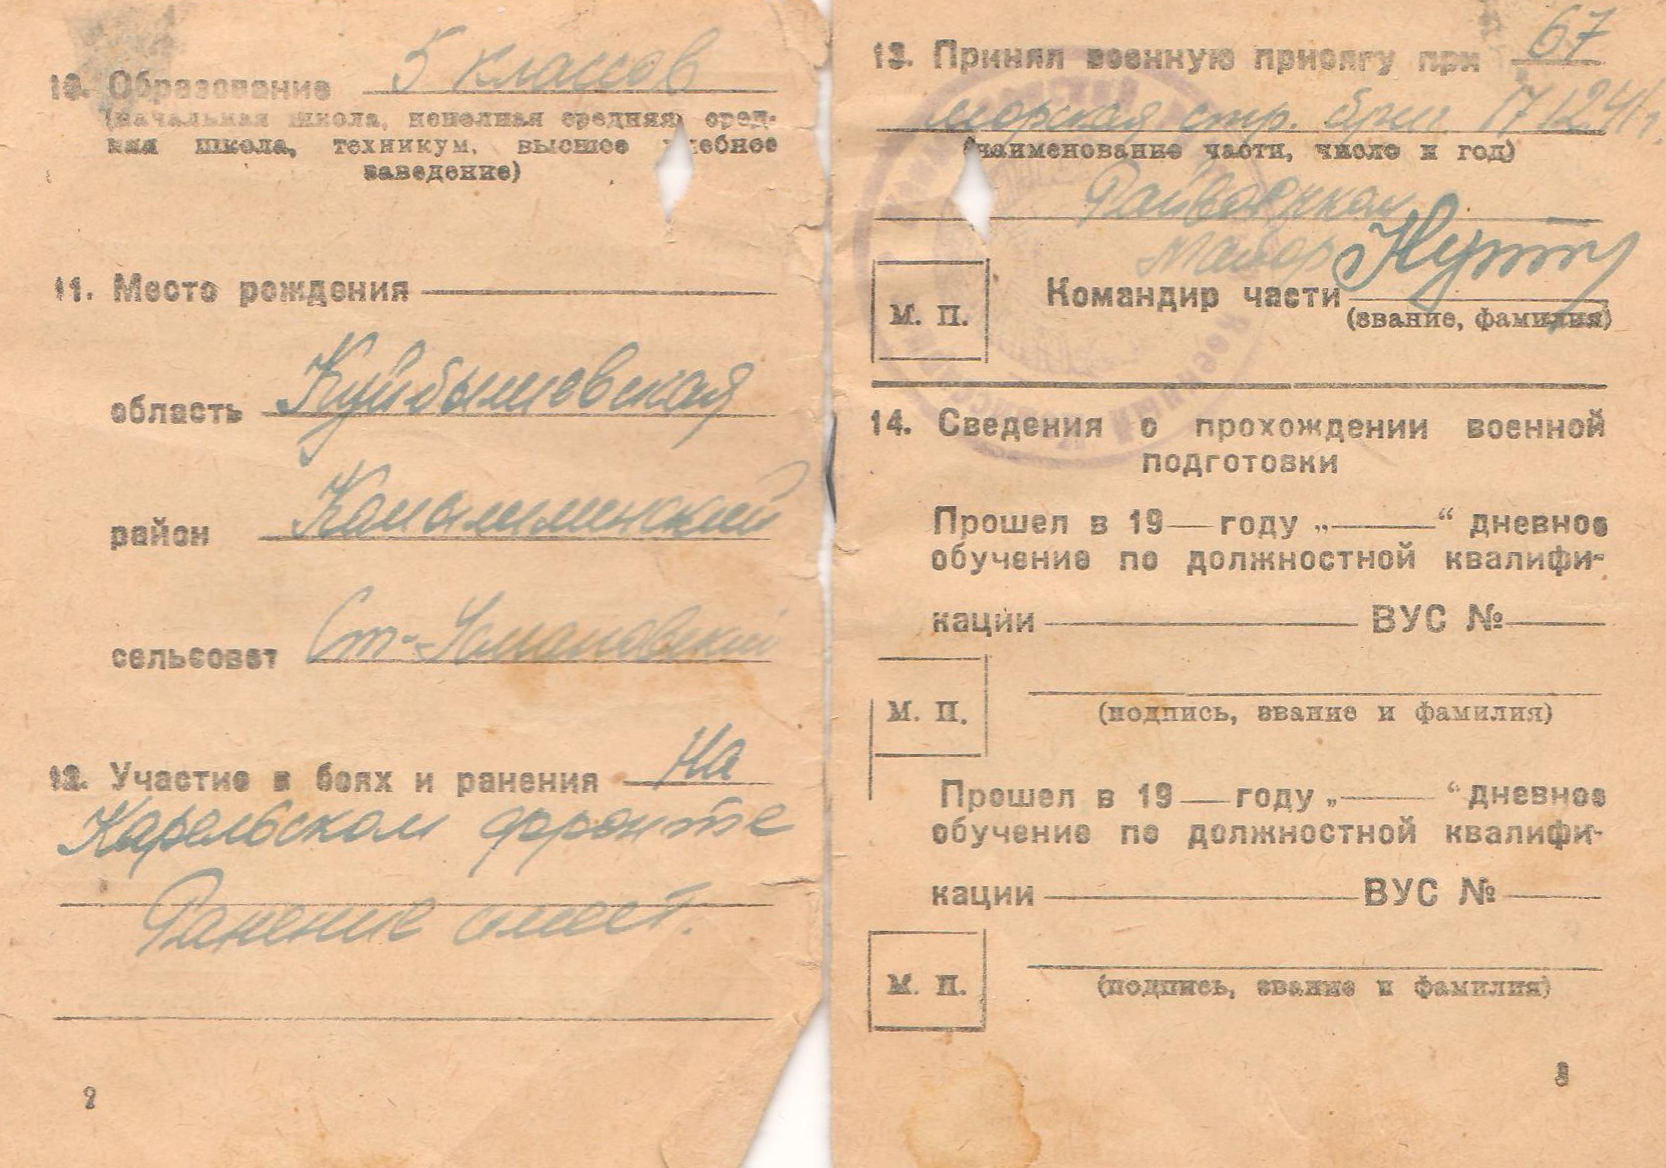 10. Образование 5 классов
(начальная школа, неполная средняя, сред-
няя школа, техникум, высшее учебное
заведение)
11. Место рождения
область Куйбышевская
район Камышлинский
сельсовет Ст-Усмановский
12. Участие в боях и ранения На
Карельском фронте
Ранение имеет.
2
13. Принял военную присягу при 67
морская стр. бриг. 17 12 41 г.
(наименование части, число и год)
Райвоенком
Майор
М. П.
Командир части
(звание, фамилия)
14. Сведения о прохождении военной
подготовки
Прошел в 19 году „ “ дневное
обучение по должностной квалифи-
кации ВУС №
М. П.
(подпись, звание и фамилия)
Прошел в 19 году „ “ дневное
обучение по должностной квалифи-
кации ВУС №
М. П.
(подпись, звание и фамилия)
3